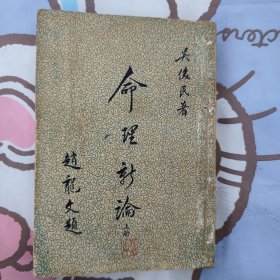 吳俊民著
命理新論
趙龍文題